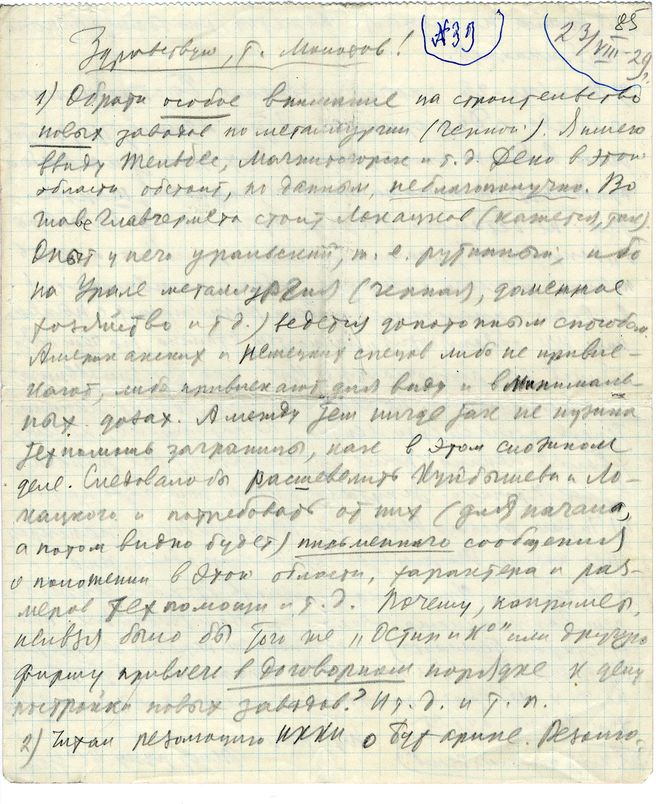 85
№39
23/VIII-29 г.
Здравствуй, т. Молотов!
1) Обрати особое внимание на строительство
новых заводов по металлургии (черной). Я имею
ввиду Тельбес, Магнитогорск и т.д. Дело в этой
области обстоит, по данным, неблагополучно. Во
главе Главчермета стоит Локацков (кажется, так).
Опыт у него уральский, т.е. рутинный, ибо
на Урале металлургия (черная, доменное
хозяйство и т.д.) ведется допотопным способом.
Американских и немецких спецов либо не привле-
кают, либо привлекают для виду и в минималь-
ных дозах. А между тем нигде так не нужна
техпомощь заграницы, как в этом сложном
деле. Следовало бы расшевелить Куйбышева и Ло-
кацкого и потребовать от них (для начала,
а потом видно будет) письменного сообщения
о положении в этой области, характера и раз-
меров техпомощи и т.д. Почему, например,
нельзя было бы того же „Остин и К⁰" или другую
фирму привлечь в договорном порядке к делу
постройки новых заводов? И т.д. и т.п.
2) Читал резолюцию ИККИ о Бухарине. Резолю-